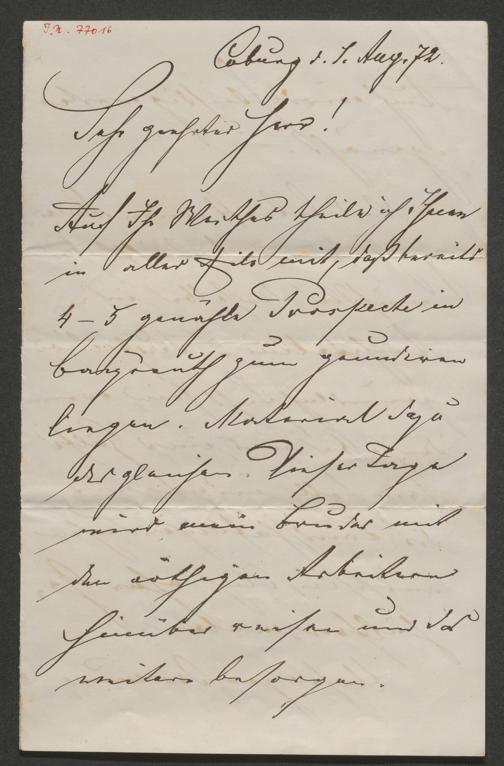 J.N. 77016
Coburg d. 1. Aug. 72.
Sehr geehrter Herr!
Auf Ihr Werthes theile ich Ihnen
in aller Eile mit, daß bereits
4 – 5 genähte Prospecte in
Bayreuth zum grundiren
liegen. Material dazu
desgleichen. Dieser Tage
wird mein Bruder mit
den nöthigen Arbeitern
hinüber reisen und das
weitere besorgen.